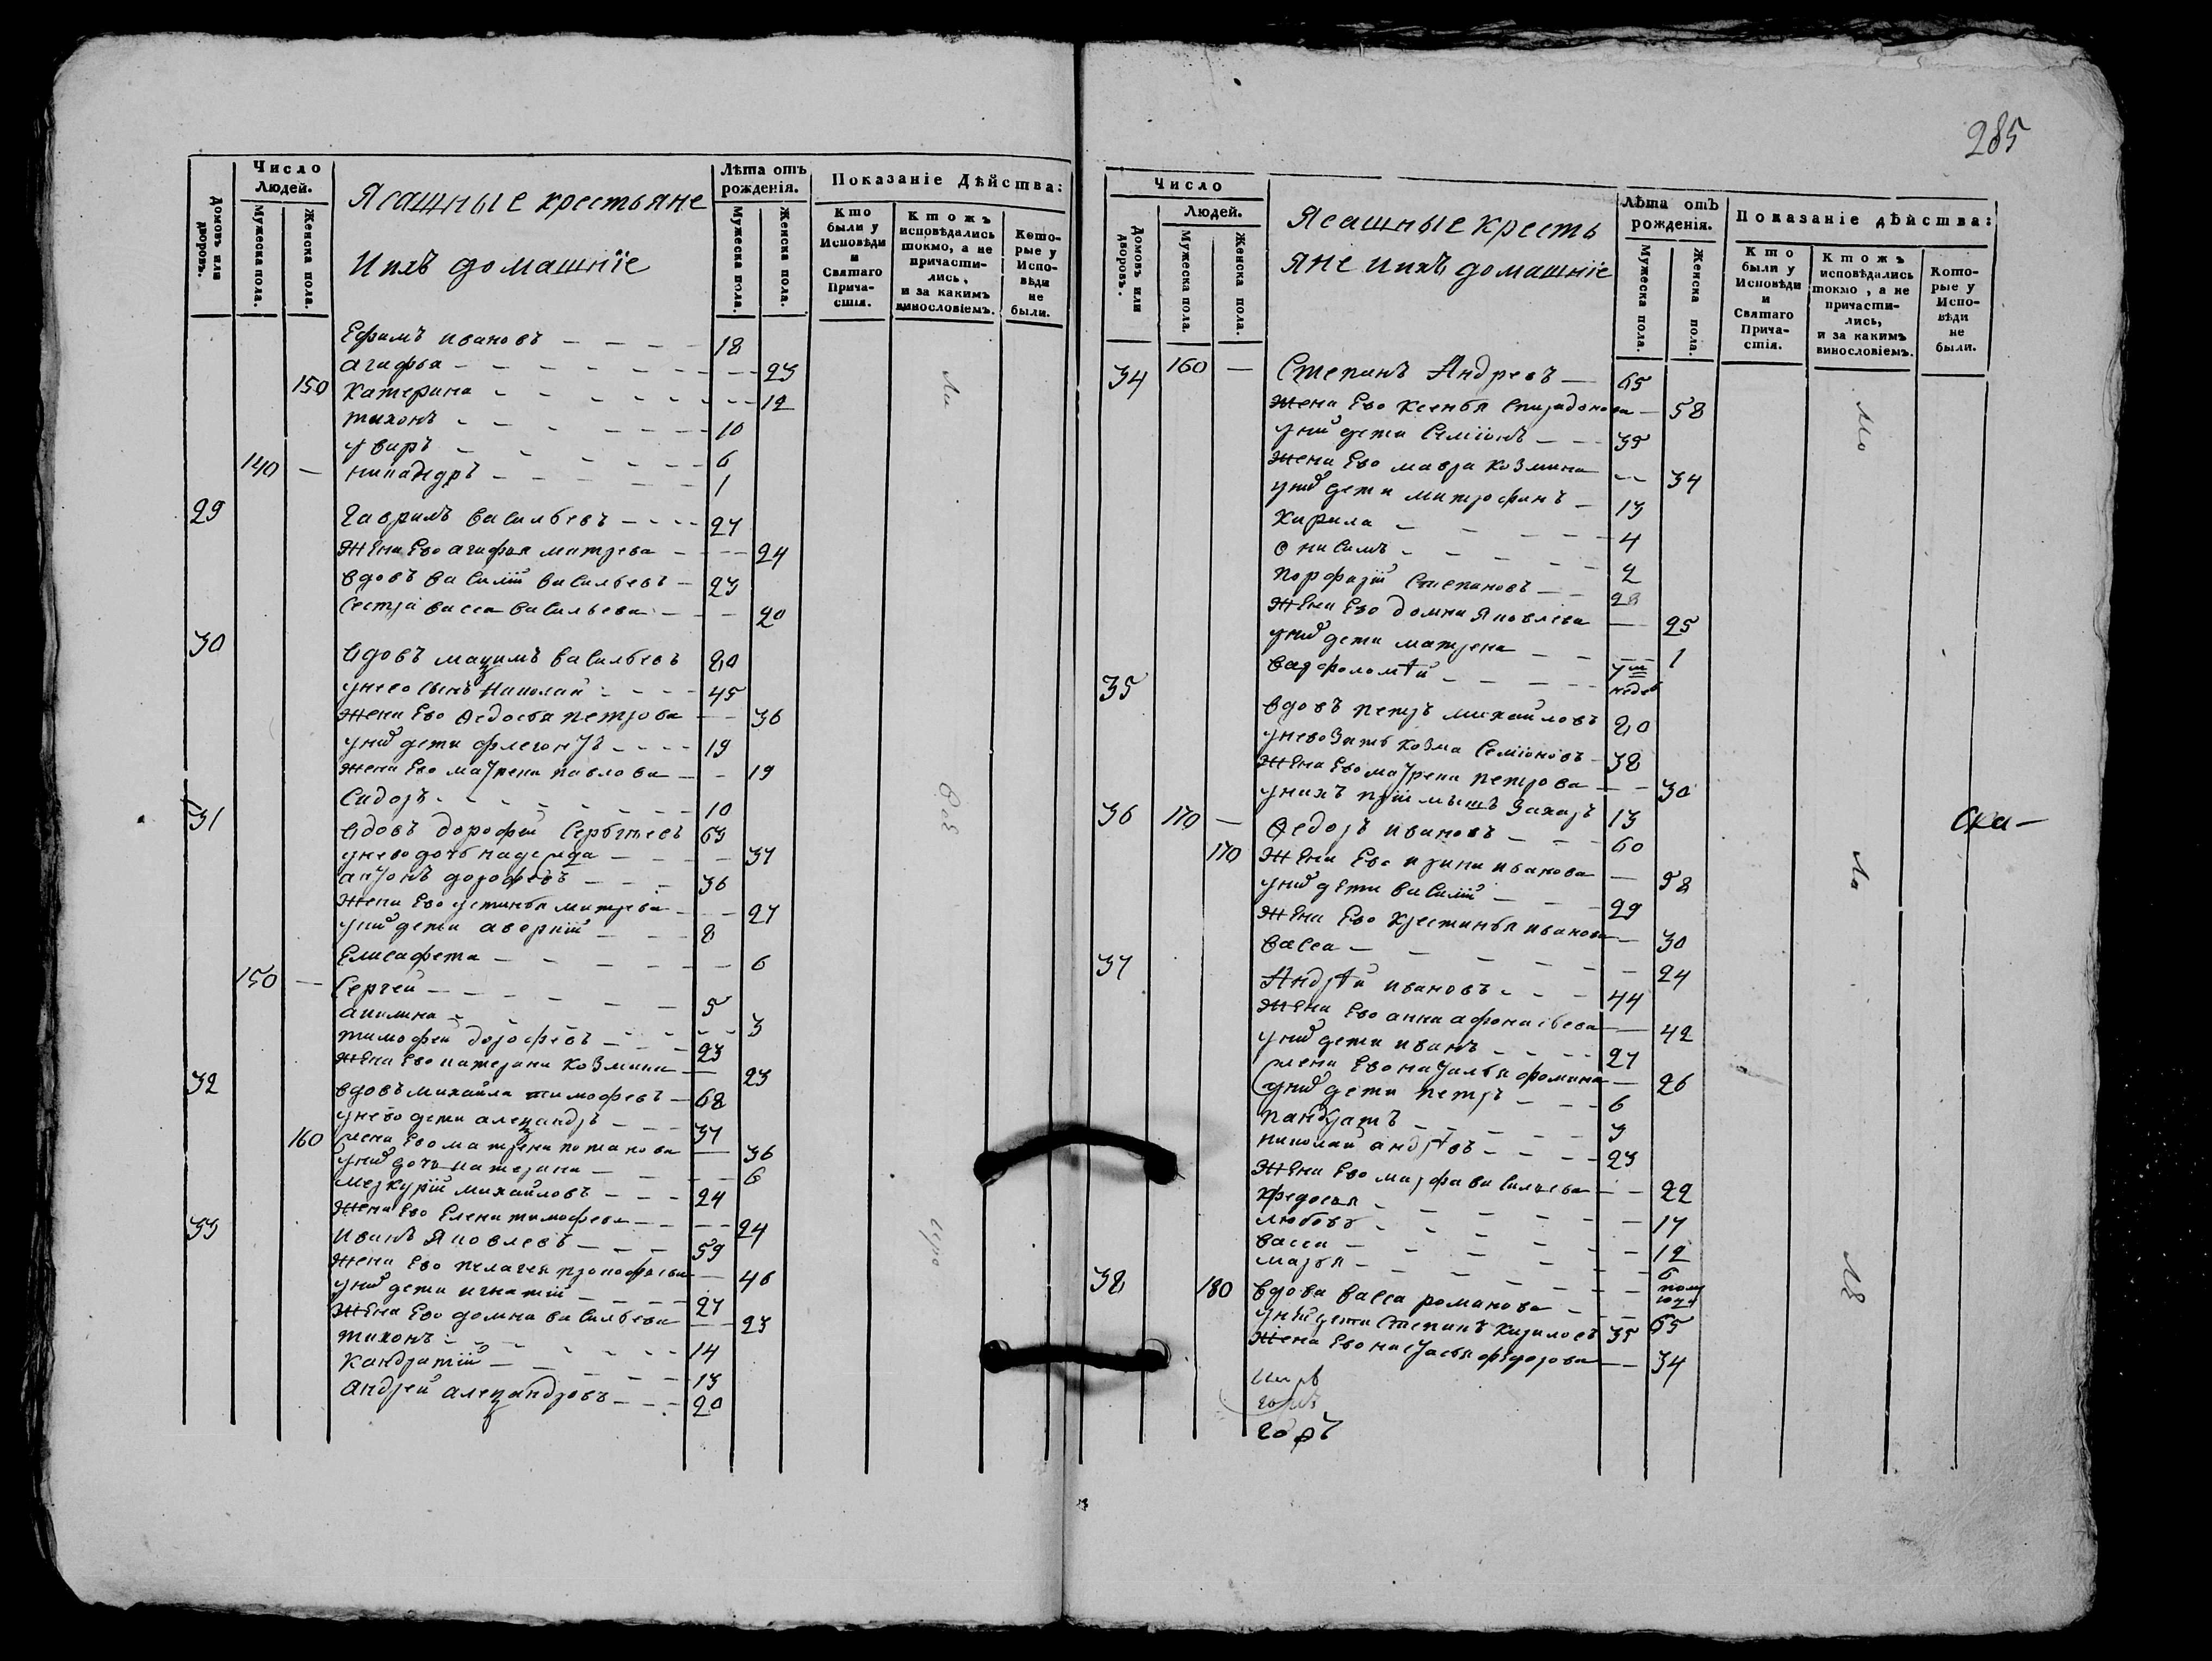 285
Число Людей.
Домовъ или дворовъ.
Мужеска пола.
Женска пола.
Ясашные крестьяне
ихъ домашніе
Лѣта отъ рожденія.
Мужеска пола.
Женска пола.
Показаніе Дѣйства:
Кто были у Исповѣди и Святаго Прича-стія.
Ктожъ исповѣдались токмо, а не причасти-лись, и за какимъ винословіемъ.
Кото-рые у Испо-вѣди не были.
Ефимъ ивановъ 18
агафья 23
150 Катерина 12
тихонъ 10
уваръ 6
140 — никандръ 1
29 Гаврилъ васильевъ 27
жена Ево агафья митрева 24
вдовъ василій васильевъ 23
сестра васса васильева 20
30 вдовъ мацимъ васильевъ 80
унево сынъ николай 45
жена Ево Ѳедосья петрова 36
униӂ дети флегонтъ 19
жена Ево матрена павлова 19
сидоръ 10
31 вдовъ дорофей Сергѣевъ 63
унево дочь надежда 37
антонъ дорофеевъ 36
жена Ево устинья митрева 27
унихъ дети аверкій 8
Елисафета 6
150 — Сергей 5
акилина 3
тимофей дорофеевъ 23
жена Ево катерина козмина 23
32 вдовъ михайла тимофеевъ 68
унево дети алецандръ 37
160 жена Ево матрена потапова 36
унихъ дочь катерина 6
меркурій михайловъ 24
жена Ево Елена тимофеева 24
33 иванъ яковлевъ 59
жена Ево пелагея прокофьева 46
унихъ дети игнатій 27
жена Ево домна васильева 23
тихонъ 14
Кандратій 13
андрей алецандровъ 20
Число
Людей.
Домовъ или дворовъ.
Мужеска пола.
Женска пола.
Ясашные кресть
яне ихъ домашніе
Лѣта отъ рожденія.
Мужеска пола.
Женска пола.
Показаніе дѣйства:
Кто были у Исповѣди и Святаго Прича-стія.
Ктожъ исповѣдались токмо, а не причасти-лись, и за какимъ винословіемъ.
Кото-рые у Испо-вѣди не были.
34 160 — Степанъ Андревъ 65
жена Ево ксенья спиридонова 58
унихъ дети Семіонъ 35
жена Ево мавра козмина 34
унихъ дети митрофанъ 13
Кирила 4
онисимъ 2
порфирій Степановъ 28
жена Ево домна яковлева 25
унихъ дети матрена 1
варфоломѣй
35 вдовъ петръ михайловъ 80
унево зять козма семіоновъ 38
жена Ево матрена петрова 30
унихъ пріимышъ Захаръ 13
36 170 — Ѳедоръ ивановъ 60
170 жена Ево ирина иванова 58
унихъ дети василій 29
жена Ево крестинья иванова 30
васса 24
37 Андрѣй ивановъ 44
жена Ево анна афонасьева 42
унихъ дети иванъ 27
жена Ево наталья фомина 26
унихъ дети петръ 6
панкратъ 3
николай андрѣевъ 23
жена Ево марфа васильева 22
Федосья 17
любовь 12
васса 6
марья
38 180 вдова васса романова 65
унѣй дети степанъ кириловъ 35
жена Ево настасья федорова 34